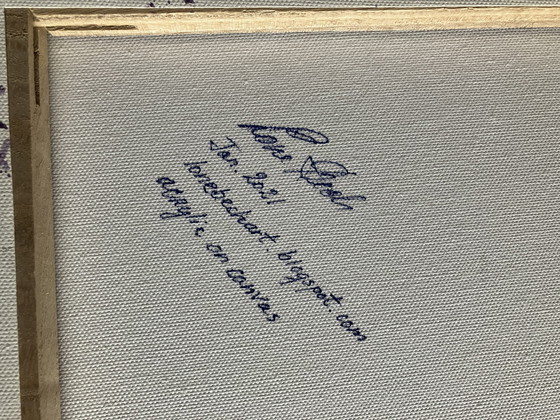 Lone Bech
Jan. 2021
lonebechart.blogspot.com
acrylic on canvas